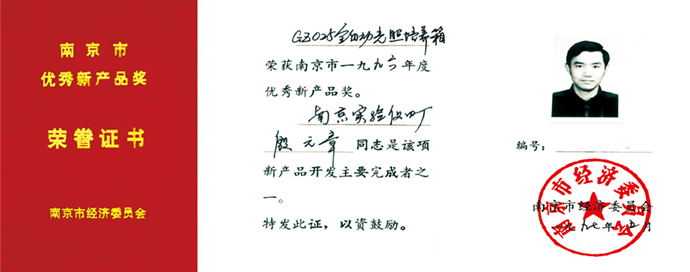 南京市
优秀新产品奖
荣誉证书
南京市经济委员会
GZ025全自动光照培养箱
荣获南京市一九九六年度
优秀新产品奖。
南京实验仪四厂
殷元章 同志是该项
新产品开发主要完成者之
一。
特发此证，以资鼓励。
编号：
南京市经济委员会
九七年五月
南京市经济委员会